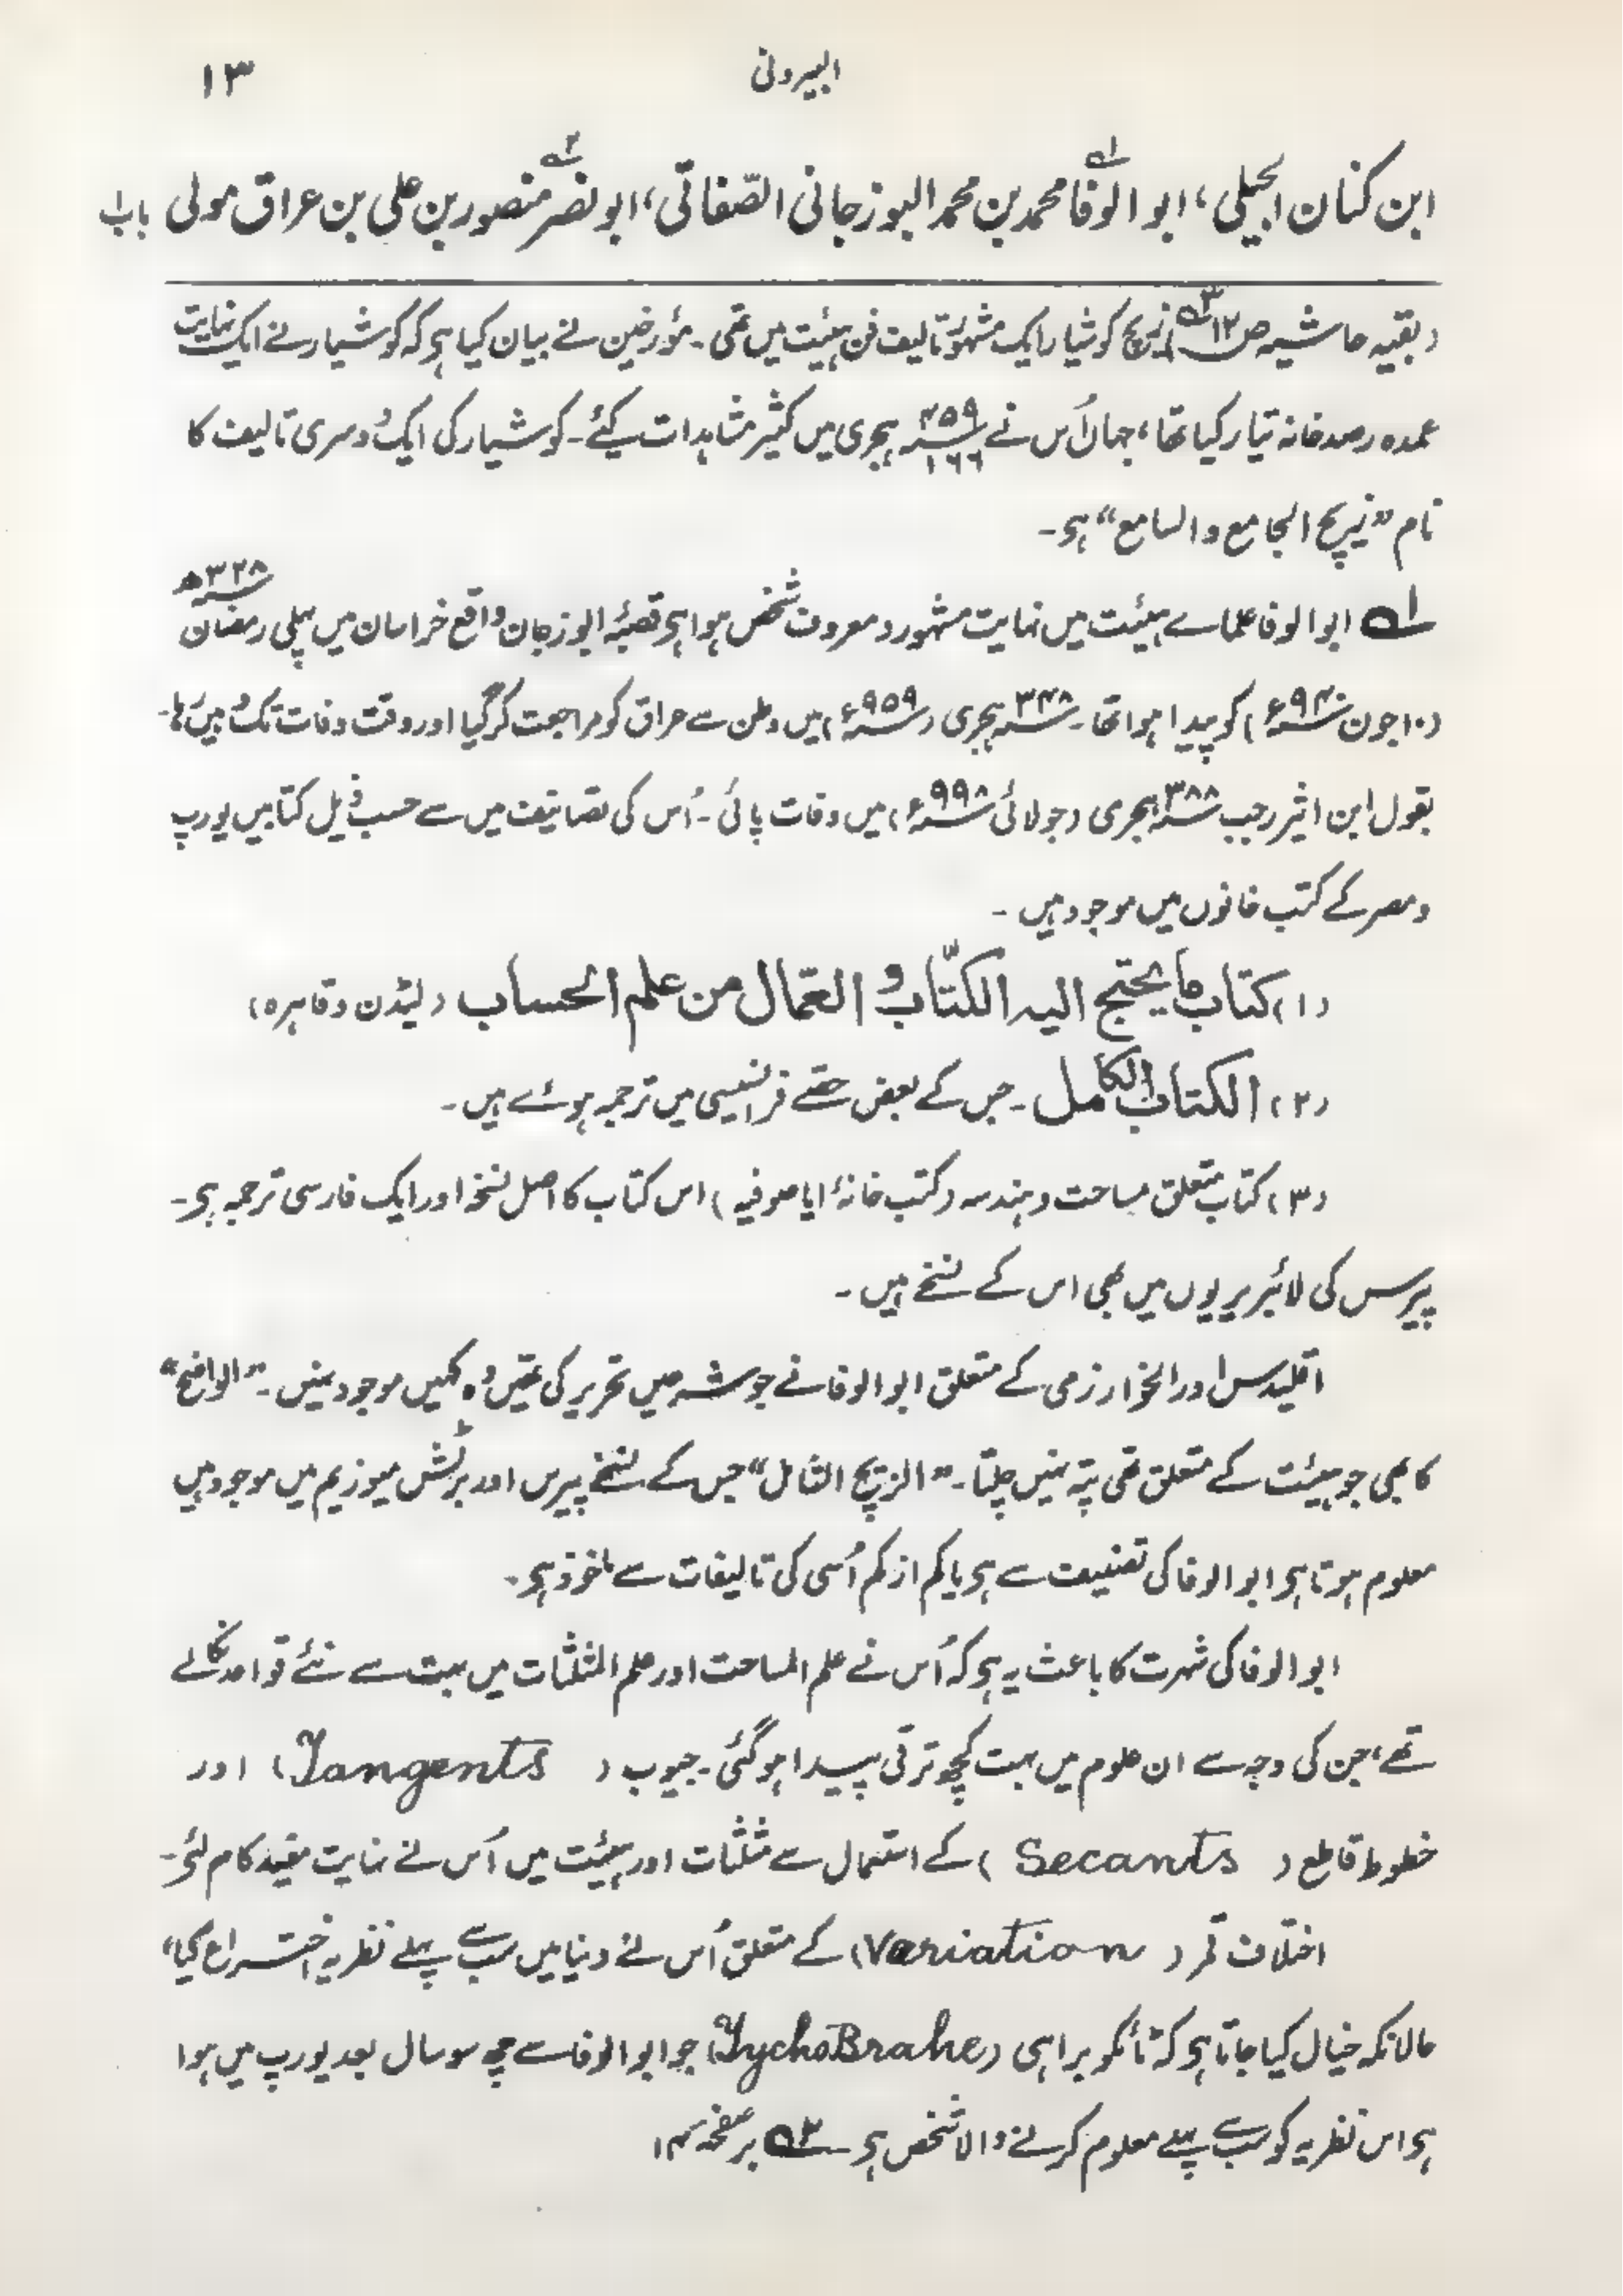 البیرونی ۱۳
ابن کنان الجیلی، ابو الوفا محمد بن محمد البوزجانی الصّفاتی، ابو نصر منصور بن علی بن عراق مولی باب۱
(بقیہ حاشیہ ص۱۲ ۳) زیج کوشیار ایک مشہور تالیف فن ہیئت میں تھی۔ مؤرخین نے بیان کیا ہو کہ کوشیار نے ایک نہایت
عمدہ رصدخانہ تیار کیا تھا، جہاں اُس نے ۴۵۹ ہجری میں کثیر مشاہدات کیئے۔ کوشیار کی ایک دوسری تالیف کا
نام "زیج الجامع والسامع" ہو۔
۱ ابو الوفا علماے ہیئت میں نہایت مشہور و معروف شخص ہوا ہو قصبۂ ابوزجان واقع خراسان میں پہلی رمضان ۳۲۸ھ
(۱۰ جون ۹۴۰ء) کو پیدا ہوا تھا۔ ۳۴۸ ہجری (۹۵۹ء) میں وطن سے عراق کو مراجعت کر گیا اور وقت وفات تک وہیں رہا۔
بقول ابن اثیر رجب ۳۸۸ ہجری (جولائی ۹۹۸ء) میں وفات پائی۔ اُس کی تصانیف میں سے حسب ذیل کتابیں یورپ
و مصر کے کتب خانوں میں موجود ہیں۔
(۱) کتاب ما یحتج الیہ الکتّاب و العمّال من علم الحساب (لیڈن و قاہرہ)
(۲) الکتاب الکامل۔ جس کے بعض حصّے فرانسیسی میں ترجمہ ہوئے ہیں۔
(۳) کتاب متعلق مساحت و ہندسہ (کتب خانۂ ایا صوفیہ) اس کتاب کا اصل نسخہ اور ایک فارسی ترجمہ ہو۔
پیرس کی لائبریریوں میں بھی اس کے نسخے ہیں۔
اقلیدس اور الخوارزمی کے متعلق ابو الوفا نے جو شرحیں تحریر کی تھیں وہ کہیں موجود نہیں۔ "الواضح"
کا بھی جو ہیئت کے متعلق تھی پتہ نہیں چلتا۔ "الزیج الشامل" جس کے نسخے پیرس اور برٹش میوزیم میں موجود ہیں
معلوم ہوتا ہو ابو الوفا کی تصنیف سے ہو یا کم از کم اُسی کی تالیفات سے ماخوذ ہو۔
ابو الوفا کی شہرت کا باعث یہ ہو کہ اُس نے علم المساحت اور علم المثلثات میں بہت سے نئے قواعد نکالے
تھے، جن کی وجہ سے ان علوم میں بہت کچھ ترقی پیدا ہو گئی۔ جیوب (Tangents) اور
خطوط قاطع (Secants) کے استعمال سے مثلثات اور ہیئت میں اُس نے نہایت مفید کام لئے۔
اختلاف قمر (Variation) کے متعلق اُس نے دنیا میں سب سے پہلے نظریہ اختراع کیا،
حالانکہ خیال کیا جاتا ہو کہ ٹائکو براہی (Tycho Brahe) جو ابو الوفا سے چھ سو سال بعد یورپ میں ہوا
ہو اس نظریہ کو سب سے پہلے معلوم کرنے والا شخص ہو ۲ بر صفحہ ۱۴